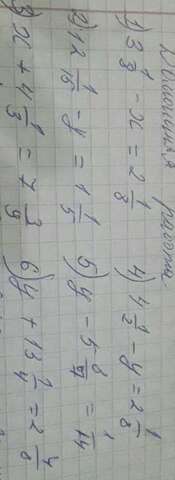 Домашняя работа.
1) 3 1/3 - x = 2 1/8 4) 4 1/2 - y = 2 1/8
2) 12 1/15 - y = 1 1/5 5) y - 5 = 1/14
3) x + 4 1/3 = 7 2/9 6) y + 13 = 2 4/8